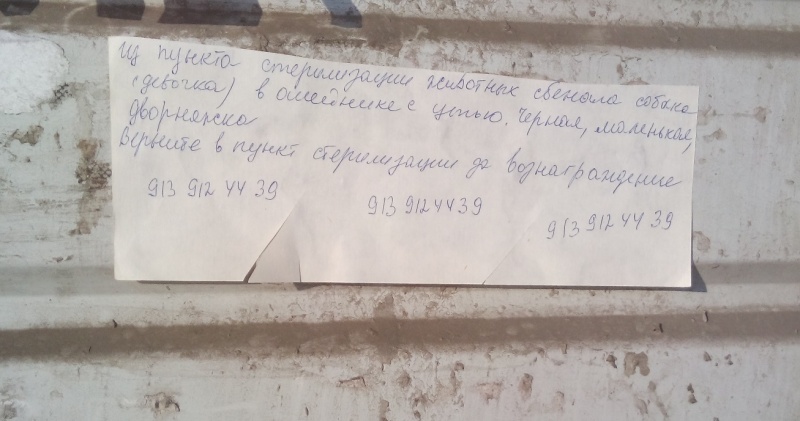 Из пункта стерилизации животных сбежала собака
(девочка) в ошейнике с цепью. Черная, маленькая,
дворняжка
Верните в пункт стерилизации за вознаграждение
913 912 44 39
913 912 44 39
913 912 44 39